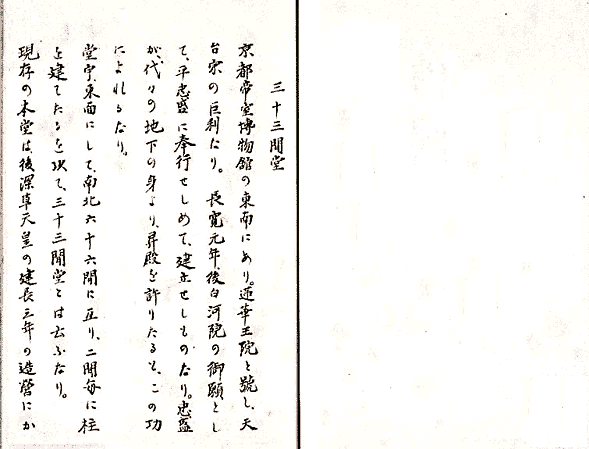 三十三間堂
京都帝室博物館の東南にあり。蓮華王院と號し、天
台宗の巨刹たり。長寛元年、後白河院の御願とし
て、平忠盛に奉行せしめて、建立せしものなり。忠盛
が、代々の地下の身より、昇殿を許りたるも、この功
によれるなり。
堂宇、東面にして、南北六十六間に亙り、二間毎に柱
を建てたるを以て、三十三間堂とは云ふなり。
現存の本堂は、後深草天皇の建長三年の造營にか